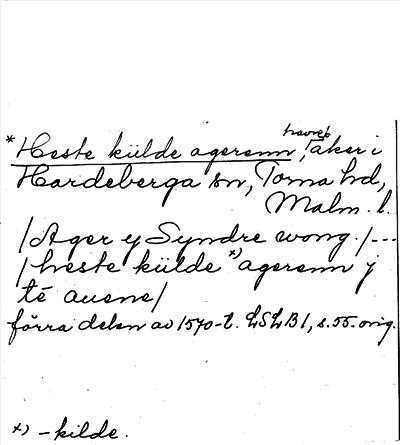 * Heste külde agerenn, Taker i
Hardeberga sn, Torna hd,
Malm. l.
/Ager y Syndre wong./---
/heste külde *) agerenn y
té auene/
förra delen av 1570-t. LSLB1, s. 55. orig.
*) -kilde.